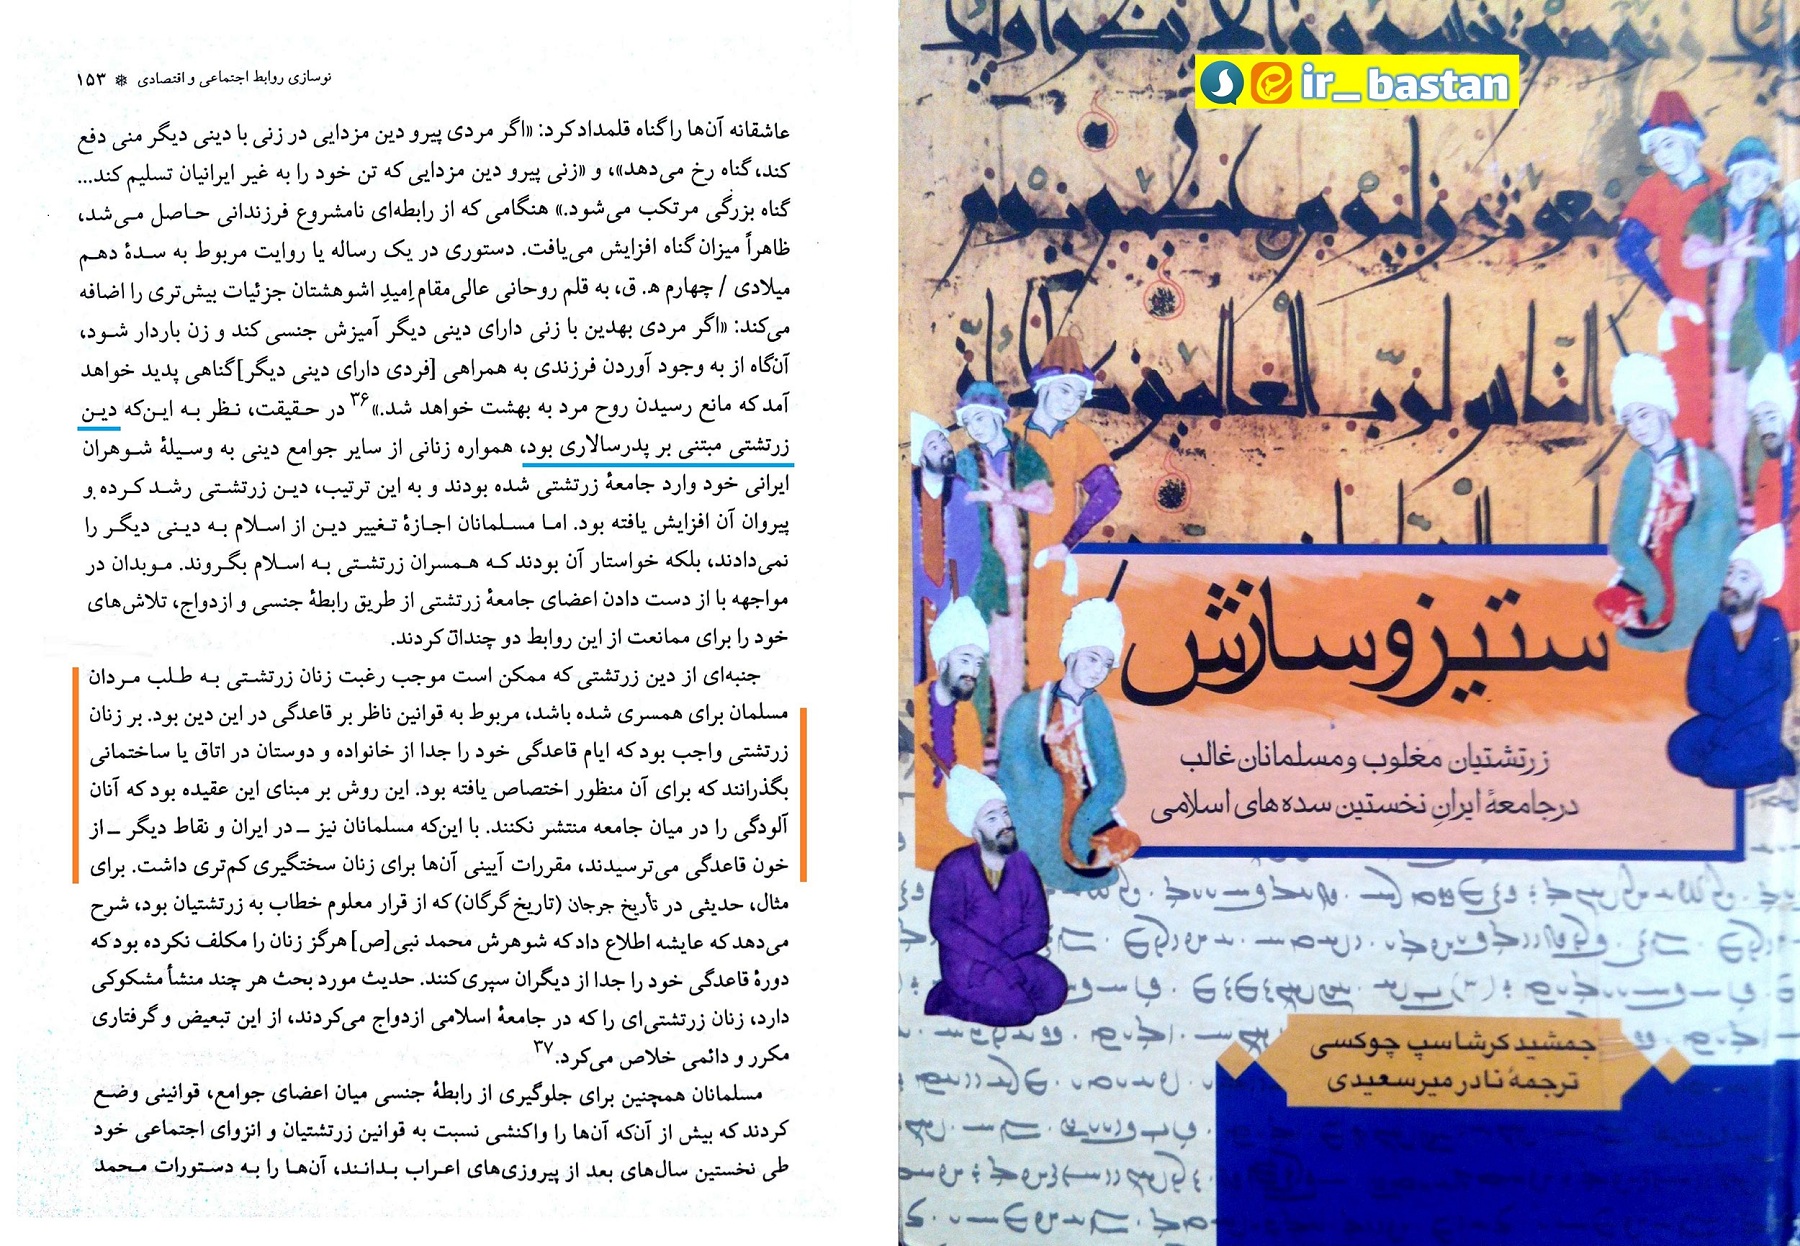 نوسازی روابط اجتماعی و اقتصادی ❄ ۱۵۳
عاشقانه آن‌ها را گناه قلمداد کرد: «اگر مردی پیرو دین مزدایی در زنی با دینی دیگر منی دفع
کند، گناه رخ می‌دهد»، و «زنی پیرو دین مزدایی که تن خود را به غیر ایرانیان تسلیم کند...
گناه بزرگی مرتکب می‌شود.» هنگامی که از رابطه‌ای نامشروع فرزندانی حاصل می‌شد،
ظاهراً میزان گناه افزایش می‌یافت. دستوری در یک رساله یا روایت مربوط به سدهٔ دهم
میلادی / چهارم ه‍. ق، به قلم روحانی عالی‌مقام اِمیدِ اشوهشتان جزئیات بیش‌تری را اضافه
می‌کند: «اگر مردی بهدین با زنی دارای دینی دیگر آمیزش جنسی کند و زن باردار شود،
آن‌گاه از به وجود آوردن فرزندی به همراهی [فردی دارای دینی دیگر] گناهی پدید خواهد
آمد که مانع رسیدن روح مرد به بهشت خواهد شد.»۳۶ در حقیقت، نظر به این‌که دین
زرتشتی مبتنی بر پدرسالاری بود، همواره زنانی از سایر جوامع دینی به وسیلهٔ شوهران
ایرانی خود وارد جامعهٔ زرتشتی شده بودند و به این ترتیب، دین زرتشتی رشد کرده و
پیروان آن افزایش یافته بود. اما مسلمانان اجازهٔ تغییر دین از اسلام به دینی دیگر را
نمی‌دادند، بلکه خواستار آن بودند که همسران زرتشتی به اسلام بگروند. موبدان در
مواجهه با از دست دادن اعضای جامعهٔ زرتشتی از طریق رابطهٔ جنسی و ازدواج، تلاش‌های
خود را برای ممانعت از این روابط دو چندان کردند.
جنبه‌ای از دین زرتشتی که ممکن است موجب رغبت زنان زرتشتی به طلب مردان
مسلمان برای همسری شده باشد، مربوط به قوانین ناظر بر قاعدگی در این دین بود. بر زنان
زرتشتی واجب بود که ایام قاعدگی خود را جدا از خانواده و دوستان در اتاق یا ساختمانی
بگذرانند که برای آن منظور اختصاص یافته بود. این روش بر مبنای این عقیده بود که آنان
آلودگی را در میان جامعه منتشر نکنند. با این‌که مسلمانان نیز ــ در ایران و نقاط دیگر ــ از
خون قاعدگی می‌ترسیدند، مقررات آیینی آن‌ها برای زنان سختگیری کم‌تری داشت. برای
مثال، حدیثی در تأریخ جرجان (تاریخ گرگان) که از قرار معلوم خطاب به زرتشتیان بود، شرح
می‌دهد که عایشه اطلاع داد که شوهرش محمد نبی[ص] هرگز زنان را مکلف نکرده بود که
دورهٔ قاعدگی خود را جدا از دیگران سپری کنند. حدیث مورد بحث هر چند منشأ مشکوکی
دارد، زنان زرتشتی‌ای را که در جامعهٔ اسلامی ازدواج می‌کردند، از این تبعیض و گرفتاری
مکرر و دائمی خلاص می‌کرد.۳۷
مسلمانان همچنین برای جلوگیری از رابطهٔ جنسی میان اعضای جوامع، قوانینی وضع
کردند که بیش از آن‌که آن‌ها را واکنشی نسبت به قوانین زرتشتیان و انزوای اجتماعی خود
طی نخستین سال‌های بعد از پیروزی‌های اعراب بدانند، آن‌ها را به دستورات محمد
ir_bastan
ستیز و سازش
زرتشتیان مغلوب و مسلمانان غالب
در جامعهٔ ایرانِ نخستین سده‌های اسلامی
جمشید کرشاسپ چوکسی
ترجمهٔ نادر میرسعیدی